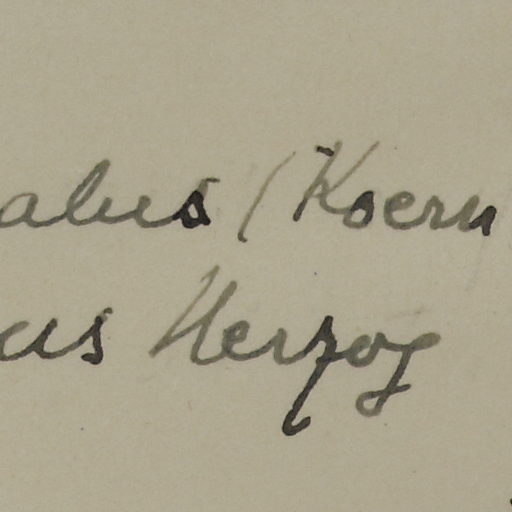 alus (Koern
us Herzog